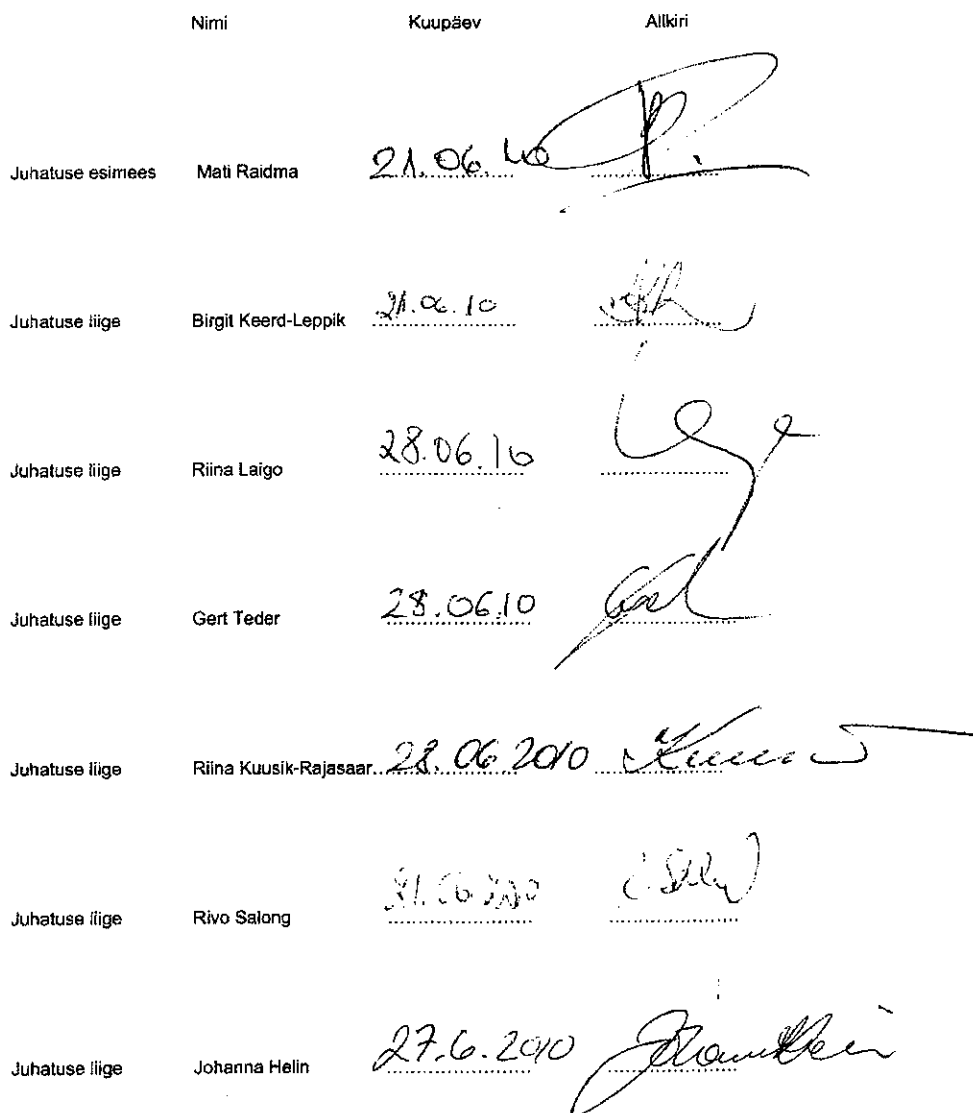 Nimi Kuupäev Allkiri
Juhatuse esimees Mati Raidma 21.06.10
Juhatuse liige Birgit Keerd-Leppik 21.06.10
Juhatuse liige Riina Laigo 28.06.10
Juhatuse liige Gert Teder 28.06.10
Juhatuse liige Riina Kuusik-Rajasaar 28.06.2010
Juhatuse liige Rivo Salong
Juhatuse liige Johanna Helin 27.6.2010 Johanna Helin